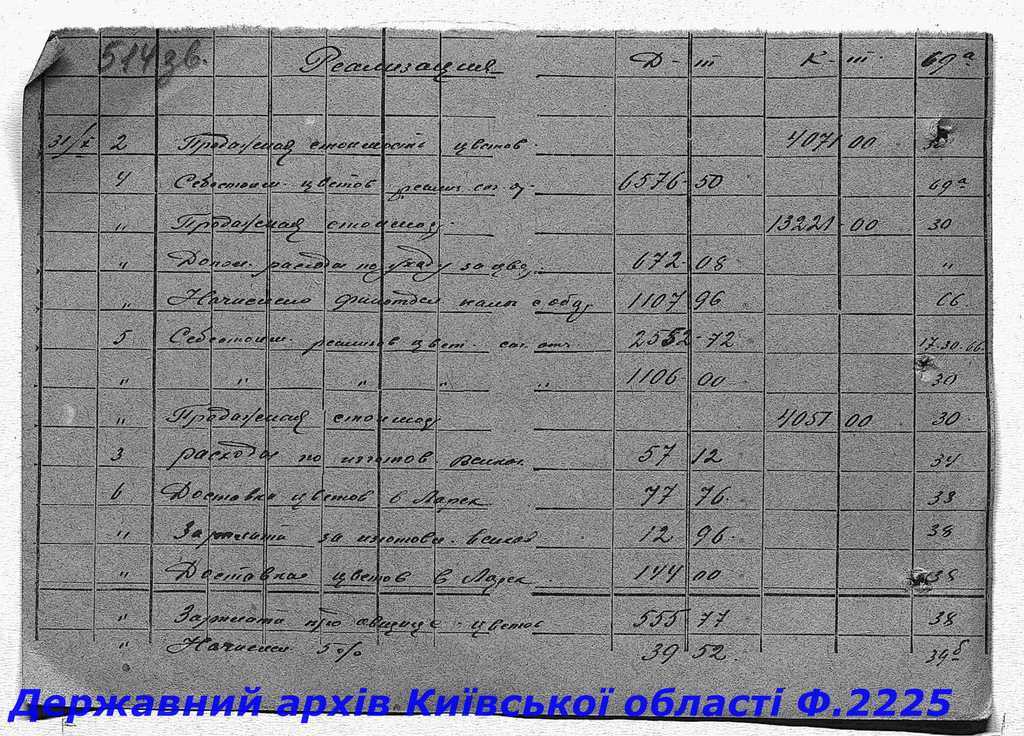 514 зв. Реализация Д-т К-т 69а
31/X 2 Продажная стоимость цветов 4071 00
4 Себестоим. цветов 6576-50 69а
" Продажная стоимос 13221-00 30
" Допол. расходы по уходу за 672-08 "
" Начислено 1107 96 66
5 Себестоим. реализов цвет. 2552-72 17.30.66
" " " " " 1106 00 30
" Продажная стоимос 4051 00 30
3 расходы по изготов венков 57 12 34
6 Доставка цветов в Ларек 77 76 38
" Зарплата за изготовл. венков 12 96 38
" Доставка цветов в Ларек 144 00 38
" Зарплата продавщице цветов 555 77 38
" Начислен 5% 39 52 39б
Державний архів Київської області Ф.2225